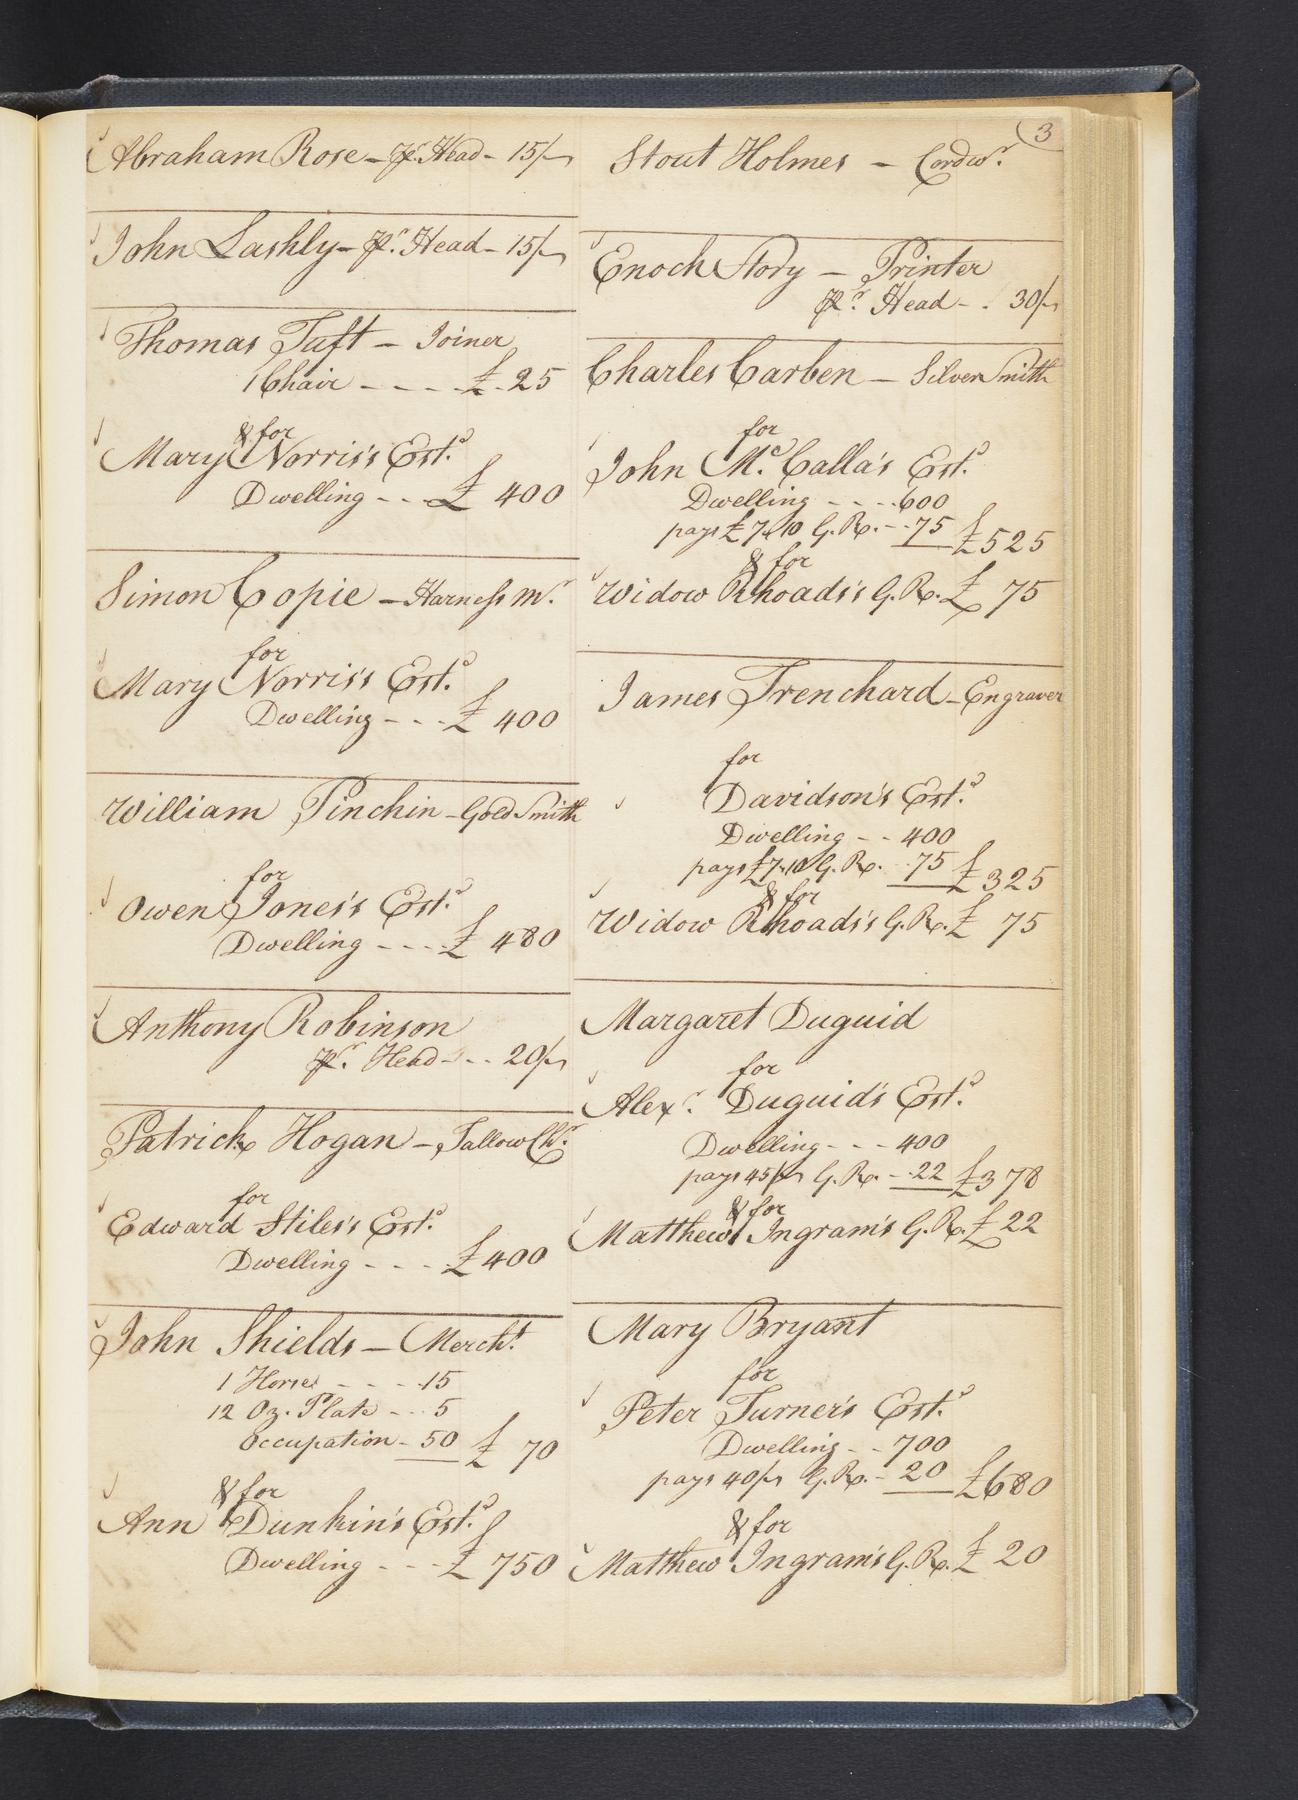 3
Abraham Rose - pr. Head - 15/-
John Lashly - pr. Head - 15/-
Thomas Tuft - Joiner
1 Chair - - - - £ 25
& for
Mary Norris's Estd.
Dwelling - - - £ 400
Simon Copie - Harness mr.
for
Mary Norris's Estd.
Dwelling - - - £ 400
William Pinchin - Gold Smith
for
Owen Jones's Estd.
Dwelling - - - - £ 480
Anthony Robinson
pr. Head - - - 20/-
Patrick Hogan - Tallow Chr.
for
Edward Stiles's Estd.
Dwelling - - - £ 400
John Shields - Mercht.
1 Horse - - - 15
12 Oz. Plate - - - 5
Occupation - 50 £ 70
& for
Ann Dunkin's Estd.
Dwelling - - - £ 750
Stout Holmes - Cordwr.
Enoch Story - Printer
pr. Head - - 30/-
Charles Carben - Silver Smith
for
John Mc. Calla's Estd.
Dwelling - - - - 600
pays £ 7..10 G. R. - - 75 £ 525
& for
Widow Rhoads's G. R. £ 75
James Trenchard - Engraver
for
Davidson's Estd.
Dwelling - - 400
pays £7..10 G. R. - - 75 £ 325
& for
Widow Rhoads's G. R. £ 75
Margaret Duguid
for
Alexr. Duguid's Estd.
Dwelling - - - 400
pays 45/- G. R. - - 22 £ 378
& for
Matthew Ingram's G. R. £ 22
Mary Bryant
for
Peter Turner's Estd.
Dwelling - - 700
pays 40/- G. R. - 20 £ 680
& for
Matthew Ingram's G. R. £ 20